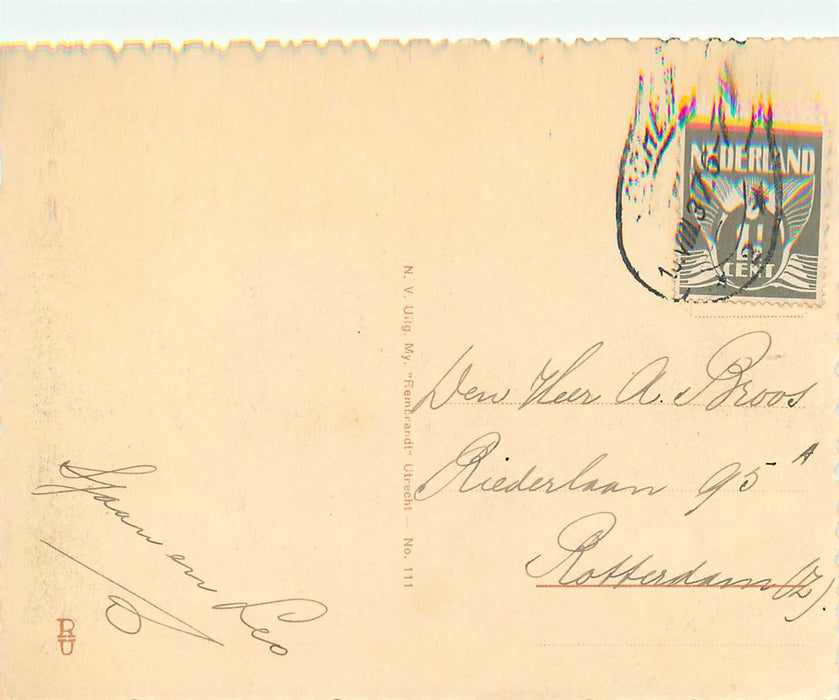 NEDERLAND
CENT
N. V. Uitg. My. "Rembrandt" Utrecht — No. 111
Den Heer A. Broos
Riederlaan 95 A
Rotterdam (Z).
Sjaan en Leo
R
U